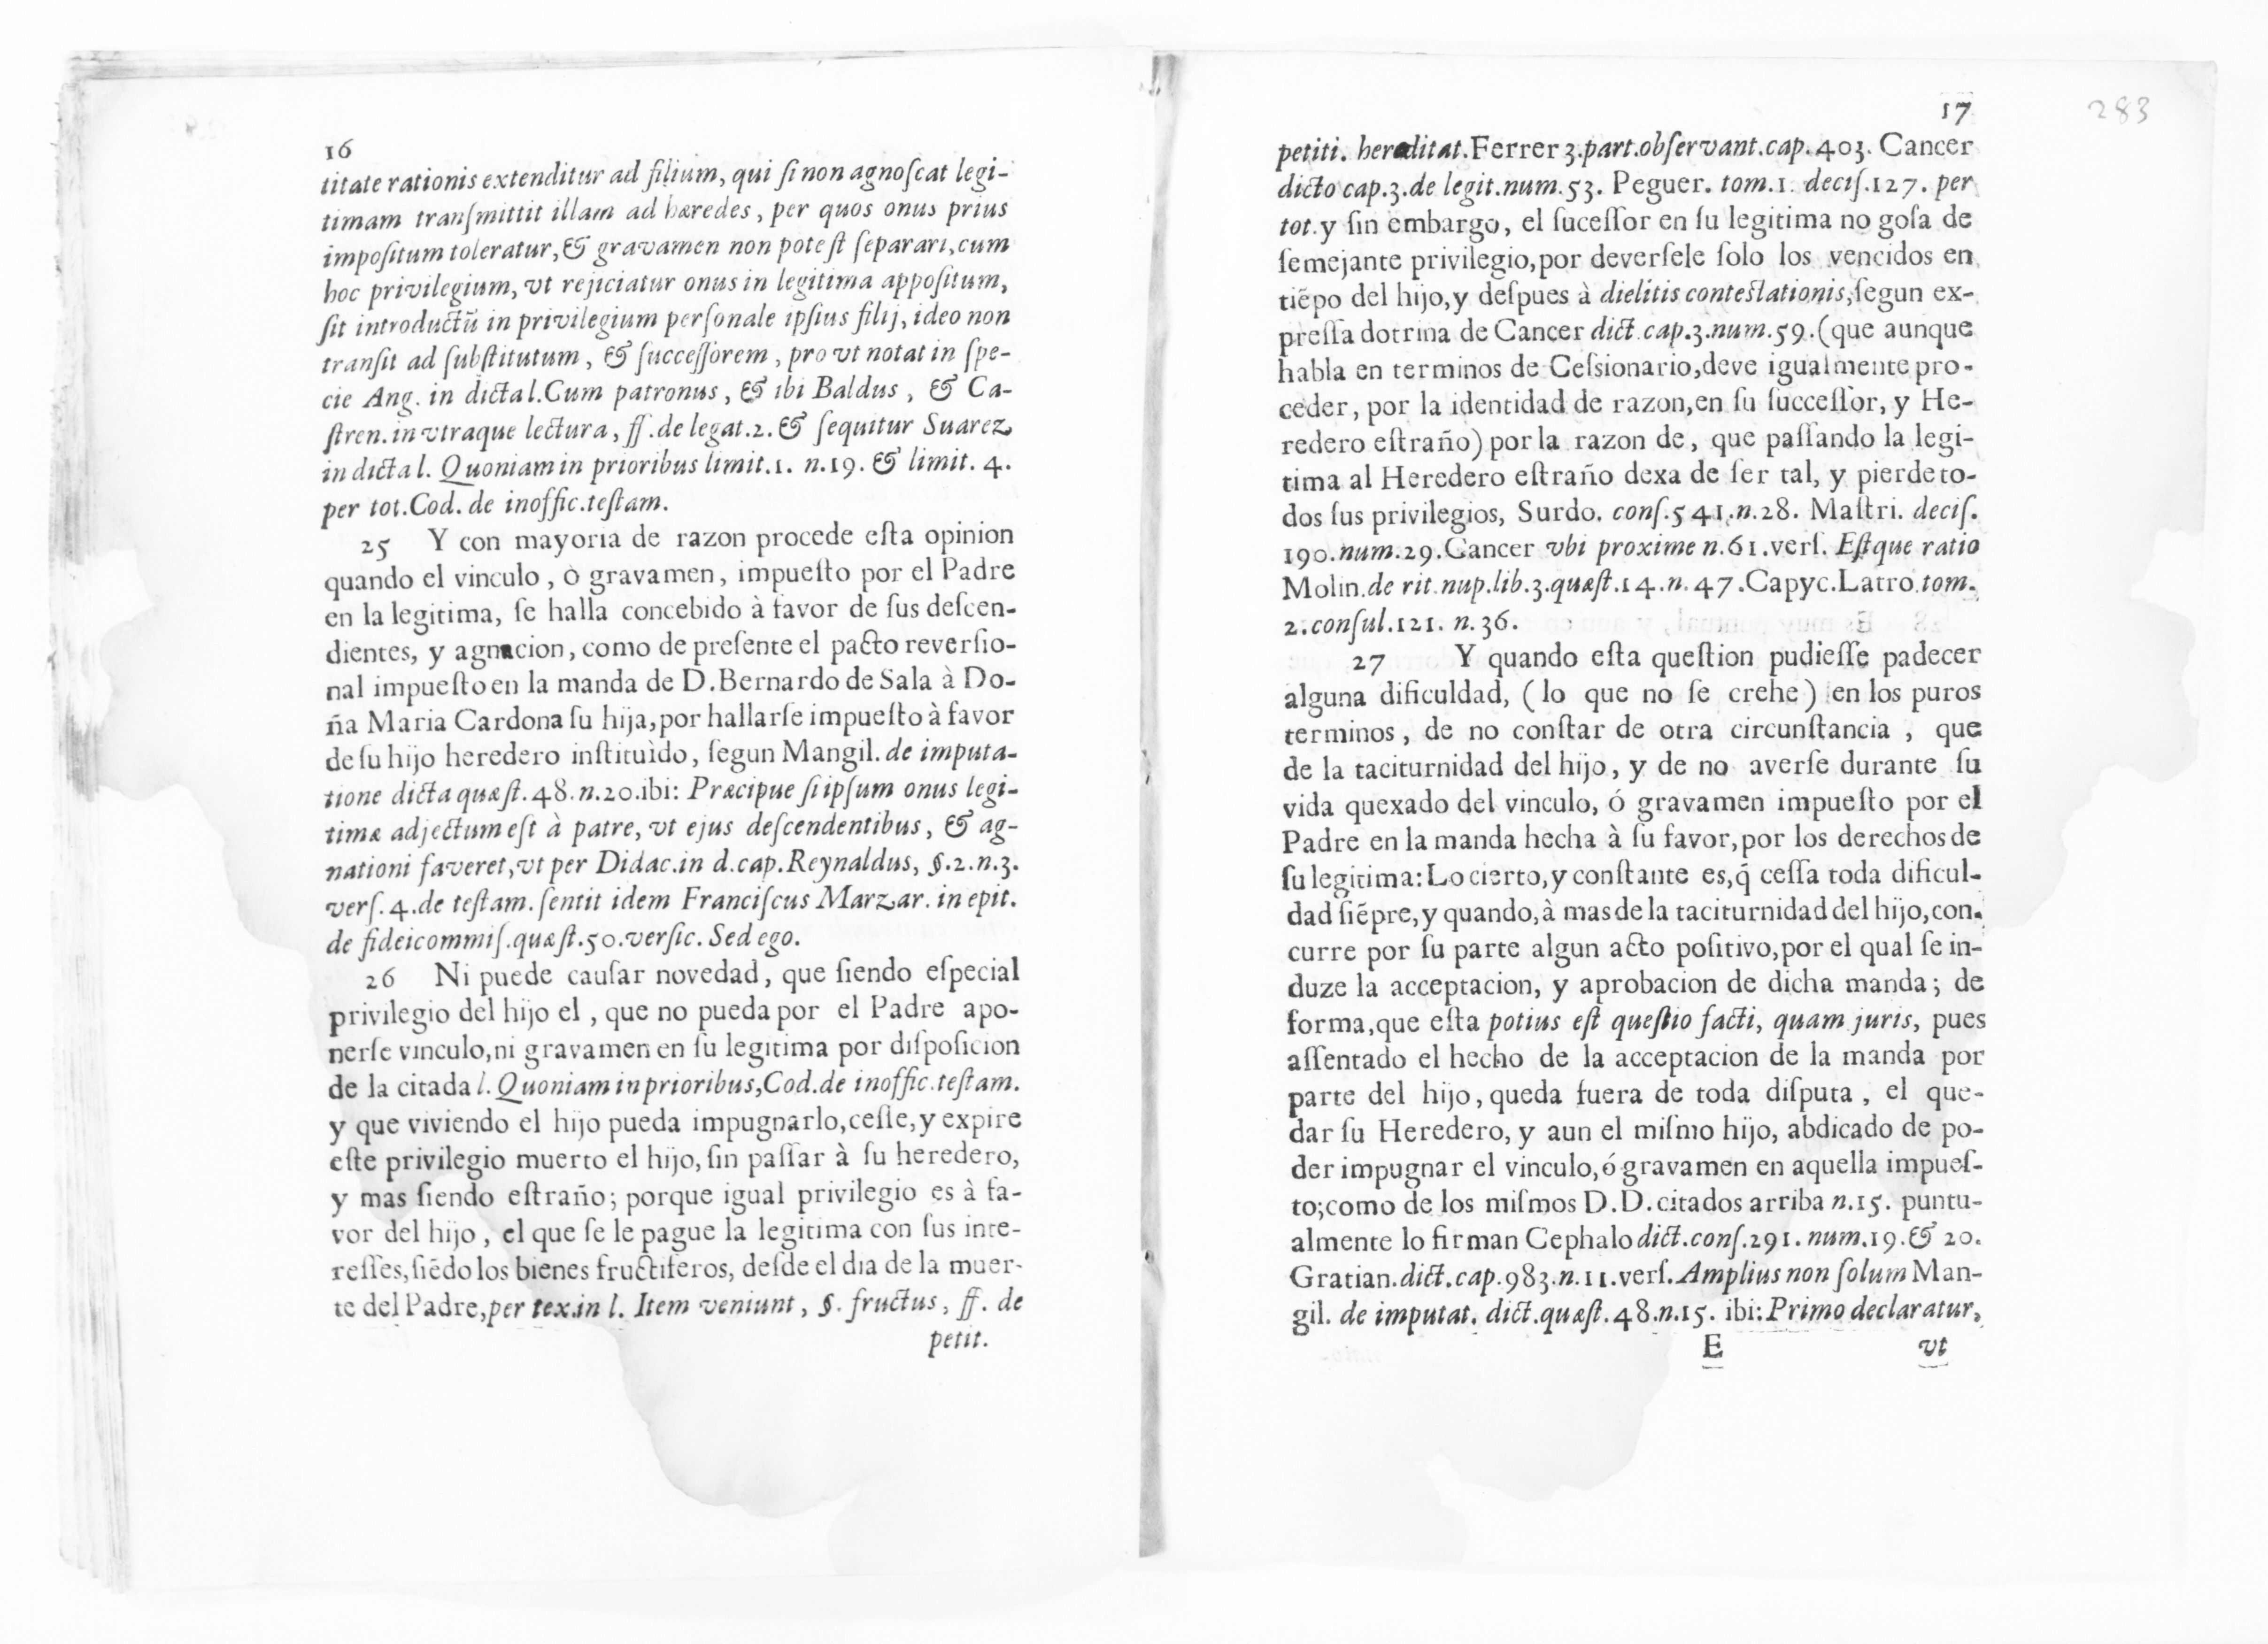 16
titate rationis extenditur ad filium, qui ſi non agnoſcat legi-
timam tranſmittit illam ad hæredes, per quos onus prius
impoſitum toleratur, & gravamen non poteſt ſeparari, cum
hoc privilegium, vt rejiciatur onus in legitima appoſitum,
ſit introductũ in privilegium perſonale ipſius filij, ideo non
tranſit ad ſubſtitutum, & ſucceſſorem, pro vt notat in ſpe-
cie Ang. in dicta l. Cum patronus, & ibi Baldus, & Ca-
ſtren. in vtraque lectura, ff. de legat. 2. & ſequitur Suarez
in dicta l. Quoniam in prioribus limit. 1. n. 19. & limit. 4.
per tot. Cod. de inoffic. teſtam.
25 Y con mayoria de razon procede eſta opinion
quando el vinculo, ò gravamen, impueſto por el Padre
en la legitima, ſe halla concebido à favor de ſus deſcen-
dientes, y agnacion, como de preſente el pacto reverſio-
nal impueſto en la manda de D. Bernardo de Sala à Do-
ña Maria Cardona ſu hija, por hallarſe impueſto à favor
de ſu hijo heredero inſtituìdo, ſegun Mangil. de imputa-
tione dicta quæſt. 48. n. 20. ibi: Præcipue ſi ipſum onus legi-
timæ adjectum eſt à patre, vt ejus deſcendentibus, & ag-
nationi faveret, vt per Didac. in d. cap. Reynaldus, §. 2. n. 3.
verſ. 4. de teſtam. ſentit idem Franciſcus Marzar. in epit.
de fideicommiſ. quæſt. 50. verſic. Sed ego.
26 Ni puede cauſar novedad, que ſiendo eſpecial
privilegio del hijo el, que no pueda por el Padre apo-
nerſe vinculo, ni gravamen en ſu legitima por diſpoſicion
de la citada l. Quoniam in prioribus, Cod. de inoffic. teſtam.
y que viviendo el hijo pueda impugnarlo, ceſſe, y expire
eſte privilegio muerto el hijo, ſin paſſar à ſu heredero,
y mas ſiendo eſtraño; porque igual privilegio es à fa-
vor del hijo, el que ſe le pague la legitima con ſus inte-
reſſes, ſiẽdo los bienes fructiferos, deſde el dia de la muer-
te del Padre, per tex. in l. Item veniunt, §. fructus, ff. de
petit.
17
283
petiti. hereditat. Ferrer 3. part. obſervant. cap. 403. Cancer
dicto cap. 3. de legit. num. 53. Peguer. tom. 1. deciſ. 127. per
tot. y ſin embargo, el ſuceſſor en ſu legitima no goſa de
ſemejante privilegio, por deverſele ſolo los vencidos en
tiẽpo del hijo, y deſpues à die litis conteſtationis, ſegun ex-
preſſa dotrina de Cancer dict. cap. 3. num. 59. (que aunque
habla en terminos de Ceſsionario, deve igualmente pro-
ceder, por la identidad de razon, en ſu ſucceſſor, y He-
redero eſtraño) por la razon de, que paſſando la legi-
tima al Heredero eſtraño dexa de ſer tal, y pierde to-
dos ſus privilegios, Surdo. conſ. 541. n. 28. Maſtri. deciſ.
190. num. 29. Cancer vbi proxime n. 61. verſ. Eſtque ratio
Molin. de rit. nup. lib. 3. quæſt. 14. n. 47. Capyc. Latro tom.
2. conſul. 121. n. 36.
27 Y quando eſta queſtion pudieſſe padecer
alguna dificuldad, (lo que no ſe crehe) en los puros
terminos, de no conſtar de otra circunſtancia, que
de la taciturnidad del hijo, y de no averſe durante ſu
vida quexado del vinculo, ó gravamen impueſto por el
Padre en la manda hecha à ſu favor, por los derechos de
ſu legitima: Lo cierto, y conſtante es, q̃ ceſſa toda dificul-
dad ſiẽpre, y quando, à mas de la taciturnidad del hijo, con-
curre por ſu parte algun acto poſitivo, por el qual ſe in-
duze la acceptacion, y aprobacion de dicha manda; de
forma, que eſta potius eſt queſtio facti, quam juris, pues
aſſentado el hecho de la acceptacion de la manda por
parte del hijo, queda fuera de toda diſputa, el que-
dar ſu Heredero, y aun el miſmo hijo, abdicado de po-
der impugnar el vinculo, ó gravamen en aquella impueſ-
to; como de los miſmos D.D. citados arriba n. 15. puntu-
almente lo firman Cephalo dict. conſ. 291. num. 19. & 20.
Gratian. dict. cap. 983. n. 11. verſ. Amplius non ſolum Man-
gil. de imputat. dict. quæſt. 48. n. 15. ibi: Primo declaratur,
E vt